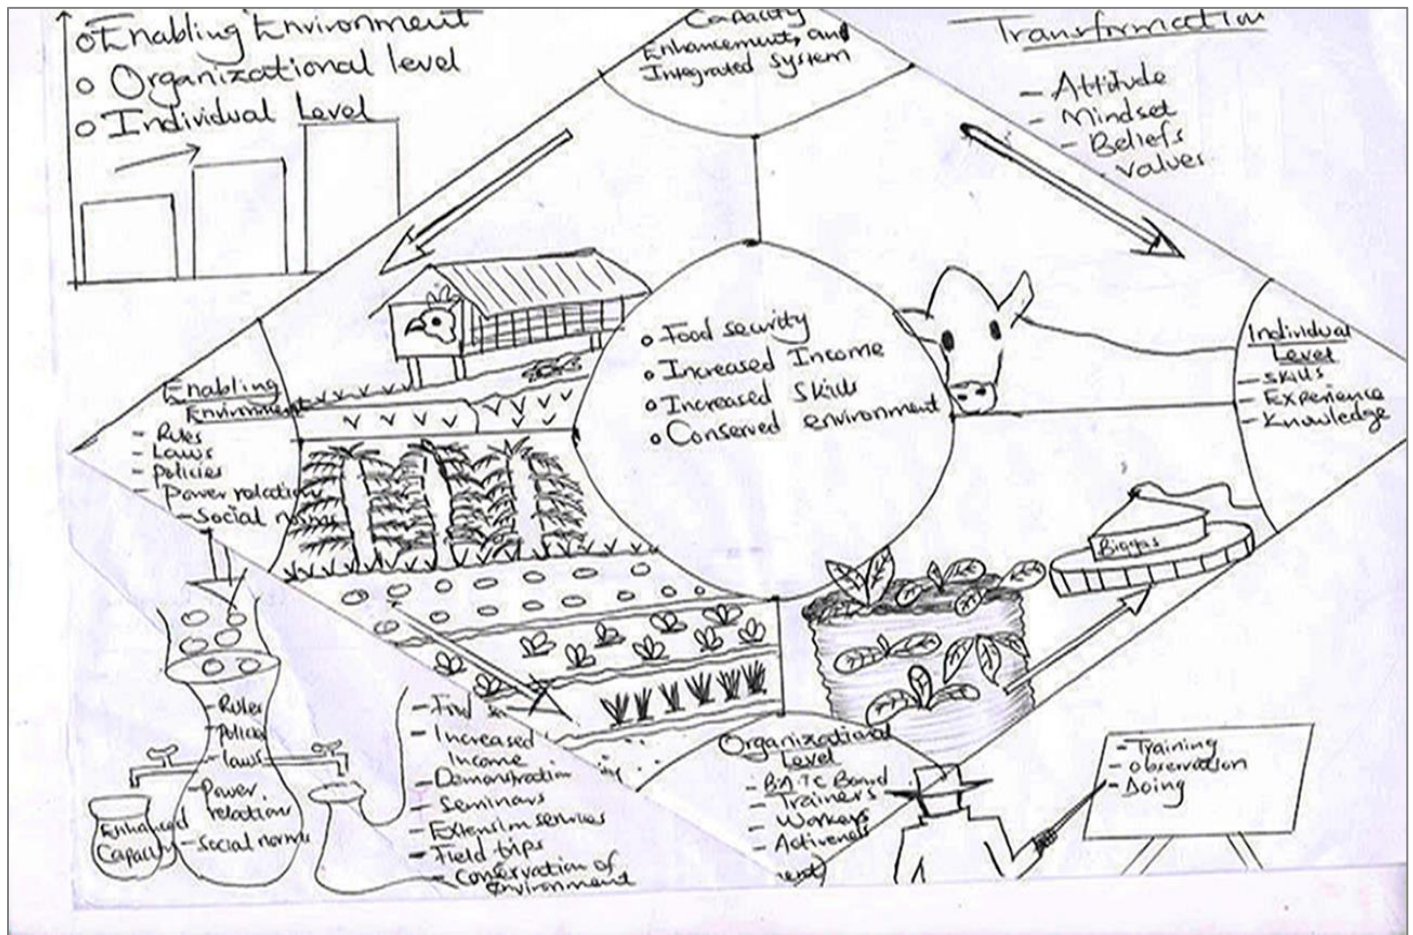 o Enabling Environment
o Organizational level
o Individual Level
Capacity
Enhancement, and
Integrated System
Transformation
- Attitude
- Mindset
- Beliefs
- Values
o Food security
o Increased Income
o Increased Skills
o Conserved environment
Individual
Level
- Skills
- Experience
- Knowledge
Enabling
Environment
- Rules
- Laws
- Policies
- Power relations
- Social norms
Biogas
- Rules
- Policies
- laws
- Power
relations
- Social norms
Enhanced
Capacity
- Food
- Increased
Income
- Demonstration
- Seminars
- Extension services
- Field trips
- Conservation of
environment
Organizational
Level
- BATC Board
- Trainers
- Workers
- Training
- Observation
- Doing